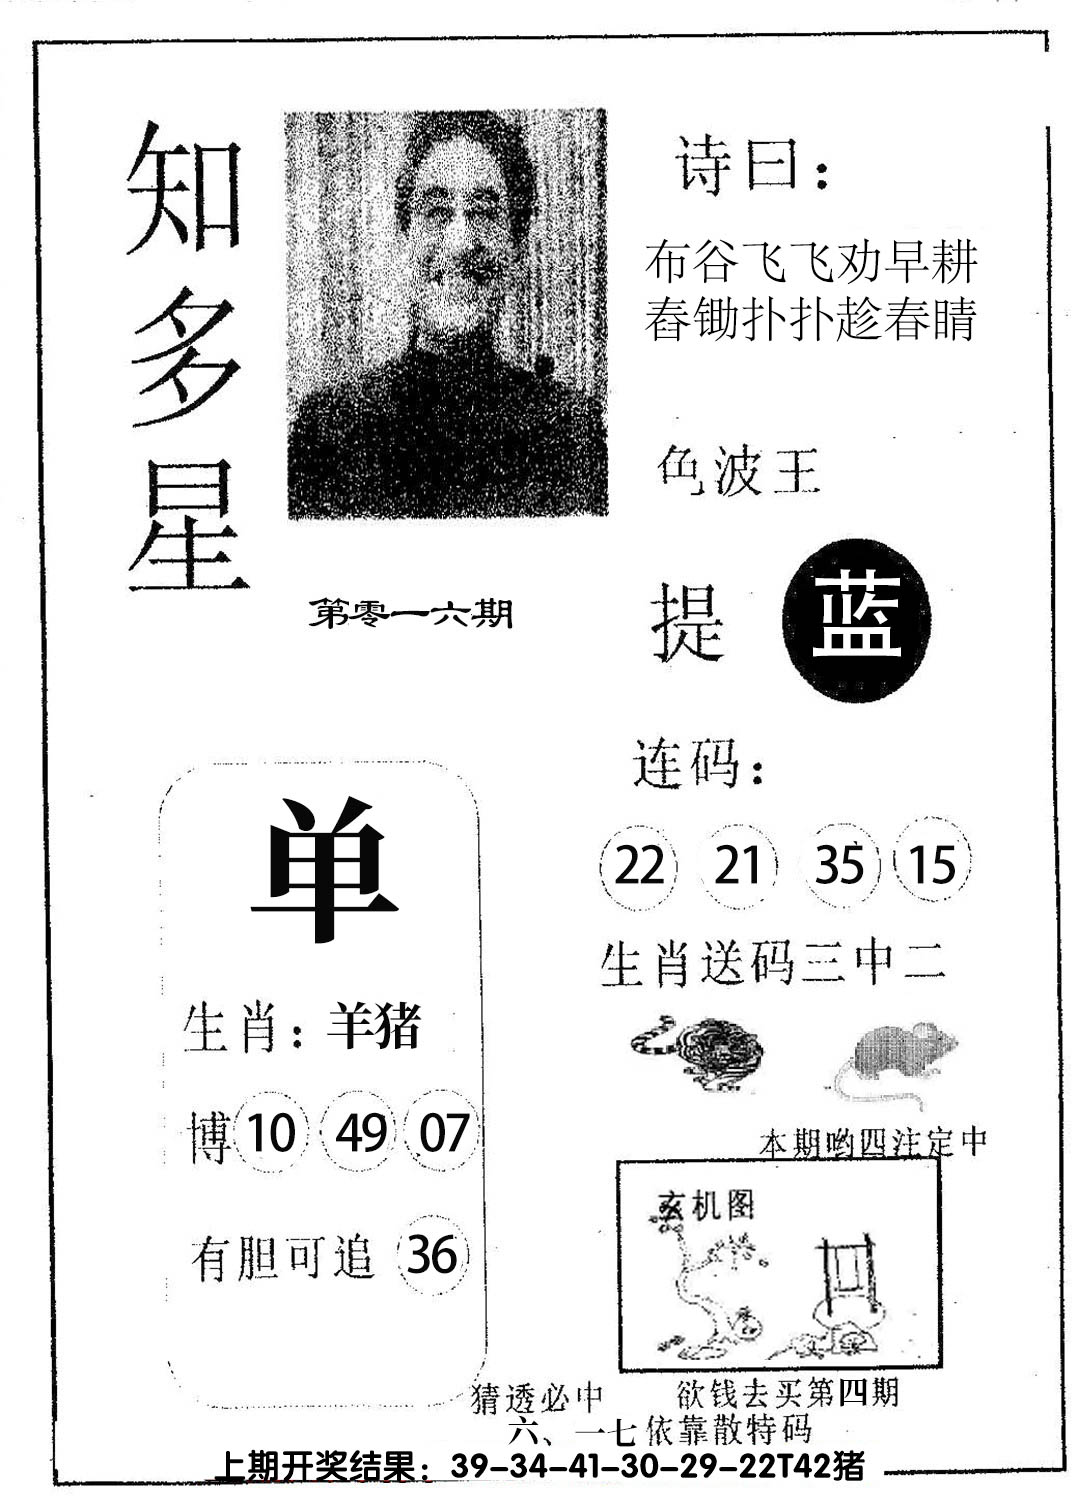 知多星
诗曰：
布谷飞飞劝早耕
舂锄扑扑趁春睛
色波王
第零一六期
提 蓝
连码：
22 21 35 15
生肖送码三中二
单
生肖：羊猪
博 10 49 07
有胆可追 36
本期哟四注定中
玄机图
猜透必中 欲钱去买第四期
六、一七依靠散特码
上期开奖结果：39-34-41-30-29-22T42猪